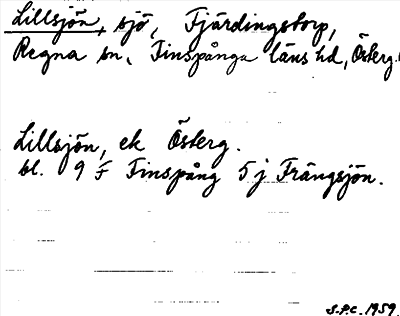 Lillsjön, sjö, Fjärdingstorp,
Regna sn, Finspånga läns hd, Österg.
Lillsjön, ek Österg.
bl. 9 F Finspång 5 j Frängsjön.
S.P.C. 1959.